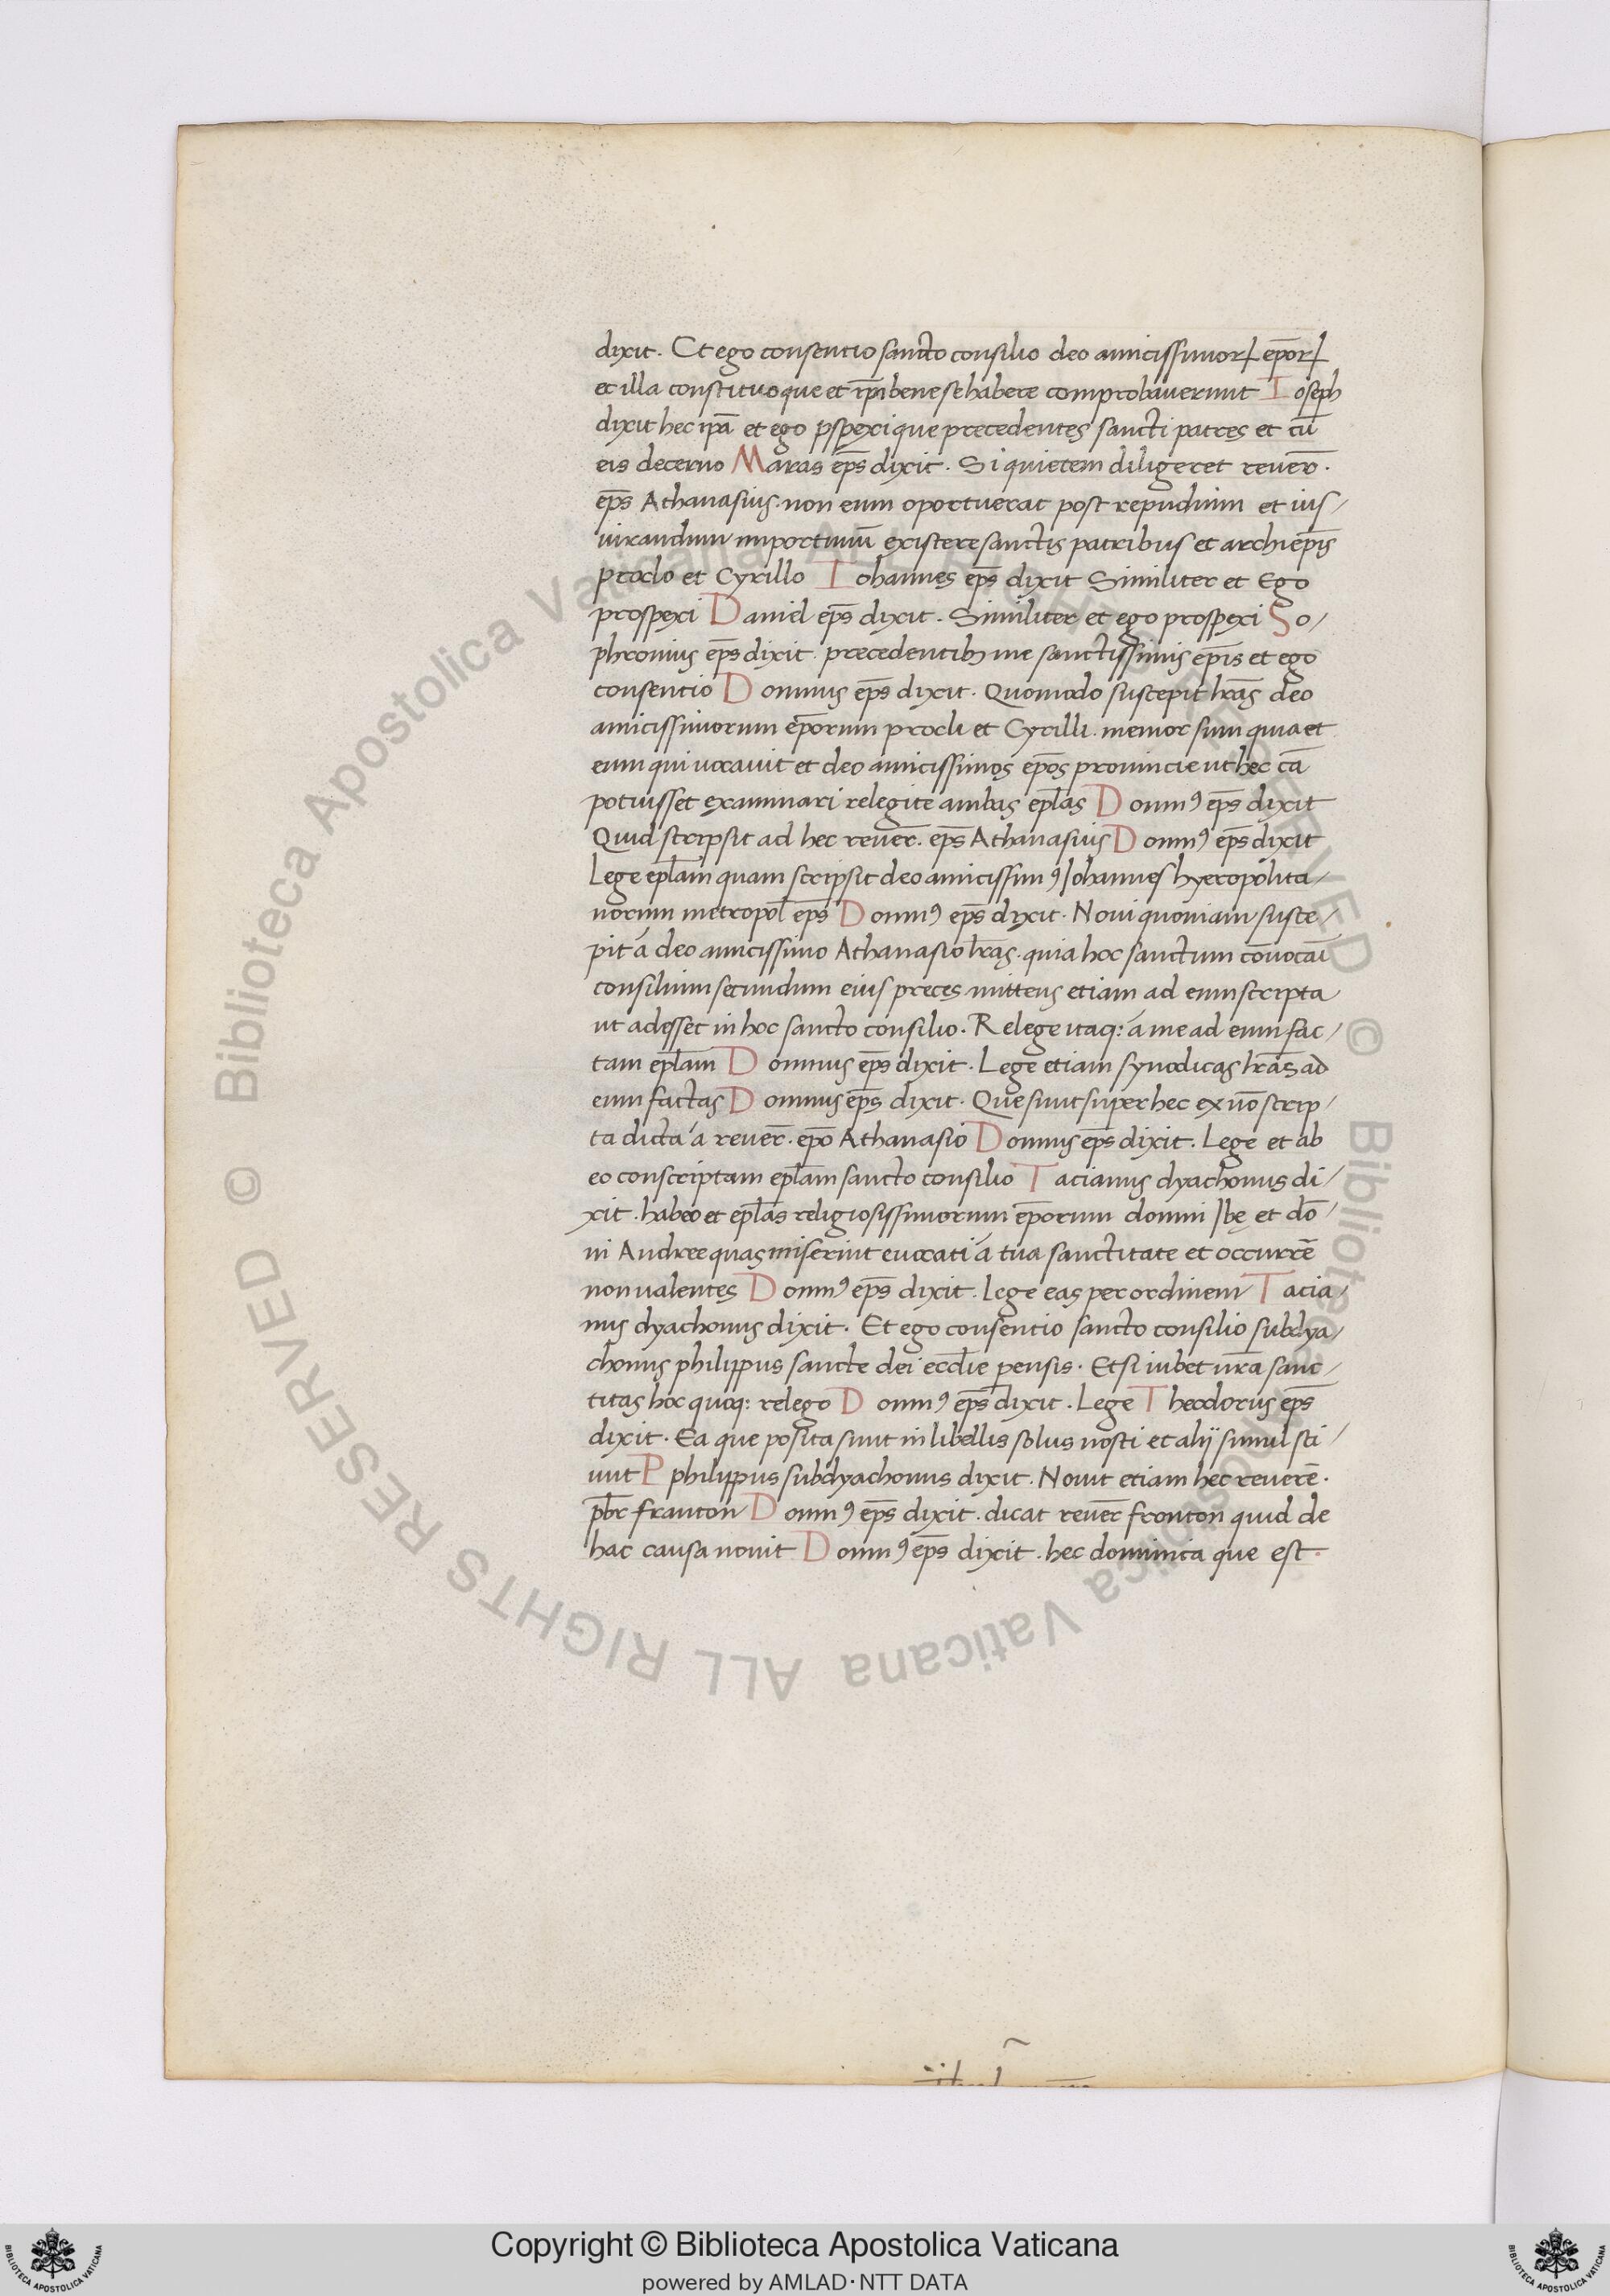 dixit. Et ego consentio sancto consilio deo amicissimoꝝ ep̄oꝝ
et illa constituo que et ip̄i bene se habere comprobauerunt Ioseph
dixit hec ip̄a et ego ꝓspexi que precedentes sancti patres et cū
eis decerno Maras ep̄s dixit. Si quietem diligeret reuer̄.
ep̄s Athanasius. non eum oportuerat post repudium et ius/
iurandum importunū existere sanctis patribus et archiep̄is
proclo et Cyrillo Iohannes ep̄s dixit Similiter et Ego
prospexi Daniel ep̄s dixit. Similiter et ego prospexi So/
phronius ep̄s dixit. precedentibꝫ me sanctissimis ep̄is et ego
consentio Domnus ep̄s dixit. Quomodo suscepit lr̄as deo
amicissimorum ep̄orum procli et Cyrilli. memor sum quia et
eum qui uocauit et deo amicissimos ep̄os prouincie ut hec cā
potuisset examinari relegite ambas ep̄las Domnꝰ ep̄s dixit
Quid scripsit ad hec reuer̄. ep̄s Athanasius Domnꝰ ep̄s dixit
Lege ep̄lam quam scripsit deo amicissimꝰ Iohannes hyeropolita/
norum metropol̄ ep̄s Domnꝰ ep̄s dixit. Noui quoniam susce/
pit á deo amicissimo Athanasio lr̄as. quia hoc sanctum cōuocaūi
consilium secundum eius preces mittens etiam ad eum scripta
ut adesset in hoc sancto consilio. Relege itaq: á me ad eum fac/
tam ep̄lam Domnus ep̄s dixit. Lege etiam synodicas lr̄as ad
eum factas Domnus ep̄s dixit. Que sunt super hec ex ūo scrip/
ta dicta á reuer̄. ep̄o Athanasio Domnus ep̄s dixit. Lege et ab
eo conscriptam ep̄lam sancto consilio Tacianus dyachonus di/
xit. habeo et ep̄las religiosissimorum ep̄orum domni Ibę et dō/
ni Andree quas miserunt euocati á tua sanctitate et occurrē
non ualentes Domnꝰ ep̄s dixit. Lege eas per ordinem Tacia/
nus dyachonus dixit. Et ego consentio sancto consilio subdya/
chonus philippus sancte dei eccl̄ie pensis. Et si iubet ur̄a sanc/
titas hoc quoq: relego Domnꝰ ep̄s dixit. Lege Theodorus ep̄s
dixit. Ea que posita sunt in libellis solus nosti et alij simul sci/
unt P philippus subdyachonus dixit. Nouit etiam hec reuerē.
pb̄r franton Domnꝰ ep̄s dixit. dicat reuer̄ fronton quid de
hac causa nouit Domnꝰ ep̄s dixit. hec dominica que est.
© Biblioteca Apostolica Vaticana ALL RIGHTS RESERVED © Biblioteca Apostolica Vaticana ALL RIGHTS RESERVED
Copyright © Biblioteca Apostolica Vaticana
powered by AMLAD·NTT DATA
BIBLIOTECA APOSTOLICA VATICANA
BIBLIOTECA APOSTOLICA VATICANA